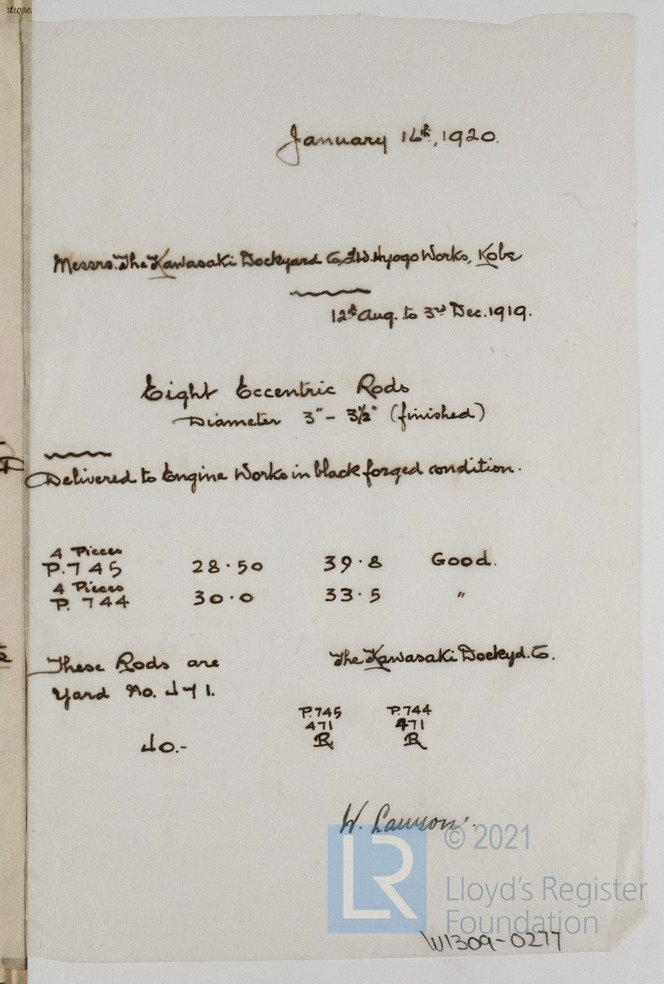 January 16th, 1920.
Messrs. The Kawasaki Dockyard Co, Ltd. Hyogo Works, Kobe
12th Aug. to 3rd Dec. 1919.
Eight Eccentric Rods
Diameter 3" - 3½" (finished)
Delivered to Engine Works in black forged condition.
4 Pieces
P. 745 28.50 39.8 Good.
4 Pieces
P. 744 30.0 33.5 "
These Rods are The Kawasaki Dockyd. Co.
Yard No. 471.
P.745 P.744
471 471
40.-
W. Lawson.
LR © 2021
Lloyd's Register
Foundation
W1309-0277